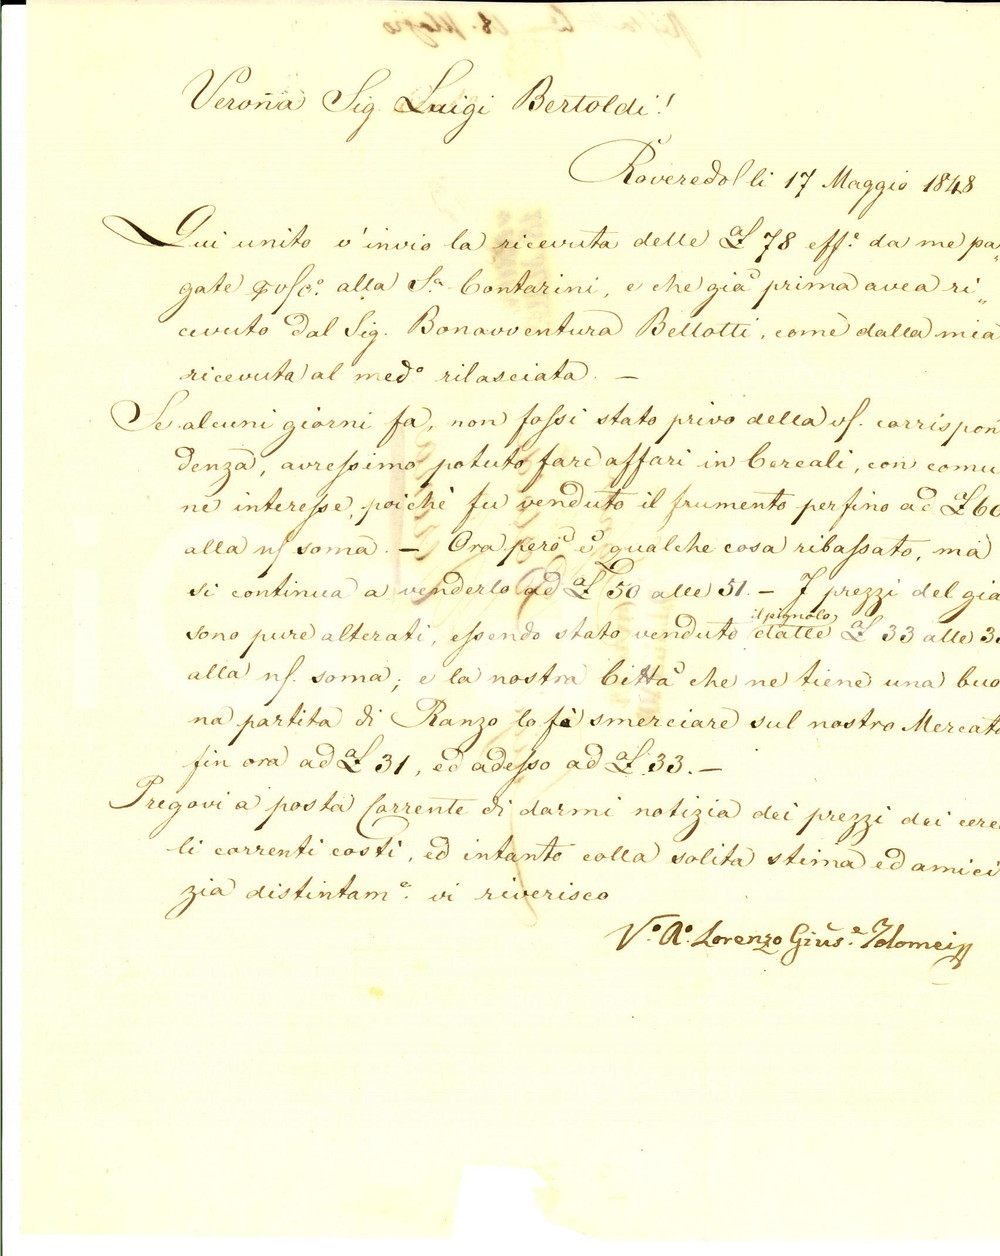 Verona Sig. Luigi Bertoldi!
Roveredo li 17 Maggio 1848
Qui unito v'invio la ricevuta delle £ 78 eff.e da me pa„
gate alla S.a Contarini, e che già prima avea ri„
cevuto dal Sig. Bonavventura Bellotti, come dalla mia
ricevuta al med.o rilasciata. —
Se alcuni giorni fa, non fossi stato privo della vs. corrispon
denza, avressimo potuto fare affari in Cereali, con comu
ne interesse, poichè fu venduto il frumento perfino ad £ 60
alla ns soma. — Ora però è qualche cosa ribassato, ma
si continua a venderlo ad £ 50 alle 51. — I prezzi del gia
il pignolo
sono pure alterati, essendo stato venduto dalle £ 33 alle
alla ns. soma; e la nostra Città che ne tiene una buo
na partita di Ranzo lo fà smerciare sul nostro Mercato
fin ora ad £ 31, ed adesso ad £ 33. —
Pregovi a posta corrente di darmi notizia dei prezzi dei cere
li correnti costì, ed intanto colla solita stima ed amici
zia distintam.e vi riverisco
V.o A.o Lorenzo Gius.e Tolomei